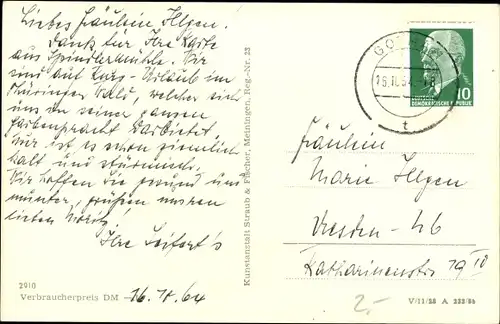 Liebes Fräulein Ilgen.
Dank für Ihre Karte
aus Spindlermühle. Wir
sind auf Kurz-Urlaub im
Thüringer Wald, welcher sich
uns in seiner ganzen
Farbenpracht darbietet.
Nur ist es schon ziemlich
kalt und stürmisch.
Wir hoffen Sie gesund und
munter, grüßen unseren
lieben
Ihre Seifert's
16. 64
2910
Verbraucherpreis DM
Kunstanstalt Straub & Fischer, Meiningen, Reg.-Nr. 23
DEMOKRATISCHE REPUBLIK
10
t
Fräulein
Marie Ilgen
Dresden - 46
Katharinenstr 19
2,-
V/11/28 A